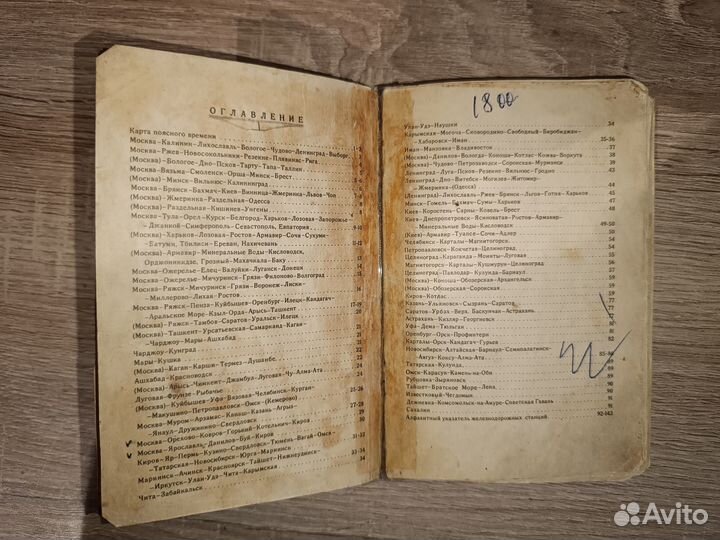 ОГЛАВЛЕНИЕ
Карта поясного времени
Москва–Калинин–Лихославль–Бологое–Чудово–Ленинград–Выборг.
Москва–Ржев–Новосокольники–Резекне–Плявиняс–Рига.
(Москва)–Бологое–Дно–Псков–Тарту–Тапа–Таллин
Москва–Вязьма–Смоленск–Орша–Минск–Брест
(Москва)–Минск–Вильнюс–Калининград
Москва–Брянск–Бахмач–Киев–Винница–Жмеринка–Львов–Чоп
(Москва)–Жмеринка–Раздельная–Одесса
(Москва)–Раздельная–Кишинев–Унгены
Москва–Тула–Орел–Курск–Белгород–Харьков–Лозовая–Запорожье–
–Джанкой–Симферополь–Севастополь, Евпатория 9-10
(Москва)–Харьков–Лозовая–Армавир–Сочи–Сухуми–
–Батуми, Тбилиси–Ереван, Нахичевань 11
(Москва)–Армавир–Минеральные Воды–Кисловодск, 12
Орджоникидзе, Грозный–Махачкала–Баку
Москва–Ожерелье–Елец–Валуйки–Луганск–Донецк 14
Москва–Ожерелье–Мичуринск–Грязи–Филоново–Волгоград
Москва–Ряжск–Мичуринск–Грязи–Воронеж–Лиски–
–Миллерово–Лихая–Ростов
Москва–Ряжск–Пенза–Куйбышев–Оренбург–Илецк–Кандагач– 17-19
–Аральское Море–Кзыл-Орда–Арысь–Ташкент 20
(Москва)–Ряжск–Тамбов–Саратов–Уральск–Илецк
(Москва)–Ташкент–Урсатьевская–Самарканд–Каган–
–Чарджоу–Мары–Ашхабад
Чарджоу–Кунград
Мары–Кушка
(Москва)–Каган–Карши–Термез–Душанбе
Ашхабад–Красноводск
(Москва)–Арысь–Чимкент–Джамбул–Луговая–Чу–Алма-Ата
Луговая–Фрунзе–Рыбачье
(Москва)–Куйбышев–Уфа–Вязовая–Челябинск–Курган–
–Макушино–Петропавловск–Омск–(Кемерово)
Москва–Муром–Арзамас–Канаш–Казань–Агрыз– 27-28
–Янаул–Дружинино–Свердловск 29
Москва–Орехово–Ковров–Горький–Котельнич–Киров 30
Москва–Ярославль–Данилов–Буй–Киров
Киров–Яр–Пермь–Кузино–Свердловск–Тюмень–Вагай–Омск– 31-32
–Татарская–Новосибирск–Юрга–Мариинск
Мариинск–Ачинск–Красноярск–Тайшет–Нижнеудинск– 33-34
–Иркутск–Улан-Удэ–Чита–Карымская 34
Чита–Забайкальск
1800
Улан-Удэ–Наушки 34
Карымская–Могоча–Сковородино–Свободный–Биробиджан–
–Хабаровск–Иман 35-36
Иман–Манзовка–Владивосток 37
(Москва)–Данилов–Вологда–Коноша–Котлас–Кожва–Воркута
(Москва)–Чудово–Петрозаводск–Сорокская–Мурманск
Ленинград–Луга–Псков–Резекне–Вильнюс–Гродно 43
Ленинград–Дно–Витебск–Могилев–Житомир–
–Жмеринка–(Одесса) 44
(Ленинград)–Лихославль–Ржев–Брянск–Льгов–Готня–Харьков 45
Минск–Гомель–Бахмач–Сумы–Харьков 47
Киев–Коростень–Сарны–Ковель–Брест 48
Киев–Днепропетровск–Ясиноватая–Ростов–Армавир–
–Минеральные Воды–Кисловодск 49-50
(Киев)–Армавир–Туапсе–Сочи–Адлер
Челябинск–Карталы–Магнитогорск
Петропавловск–Кокчетав–Целиноград
(Целиноград)–Караганда–Моинты–Луговая
Магнитогорск–Карталы–Кокшушки–Целиноград
Целиноград–Павлодар–Кулунда–Барнаул
(Москва)–Коноша–Обозерская–Архангельск
(Москва)–Обозерская–Сорокская
Киров–Котлас
Казань–Ульяновск–Сызрань–Саратов 77
Саратов–Урбах–Верх. Баскунчак–Астрахань 77
Астрахань–Кизляр–Георгиевск
Уфа–Дема–Тюльган 81
Оренбург–Орск–Профинтерн
Карталы–Орск–Кандагач–Гурьев 82
Новосибирск–Алтайская–Барнаул–Семипалатинск–
–Аягуз–Коксу–Алма-Ата 85-86
Татарская–Кулунда
Омск–Карасук–Камень-на-Оби 89
Рубцовка–Зыряновск 89
Тайшет–Братское Море–Лена 90
Известковый–Чегдомын 91
Дежневка–Комсомольск-на-Амуре–Советская Гавань 91
Сахалин
Алфавитный указатель железнодорожных станций 92-143
Avito